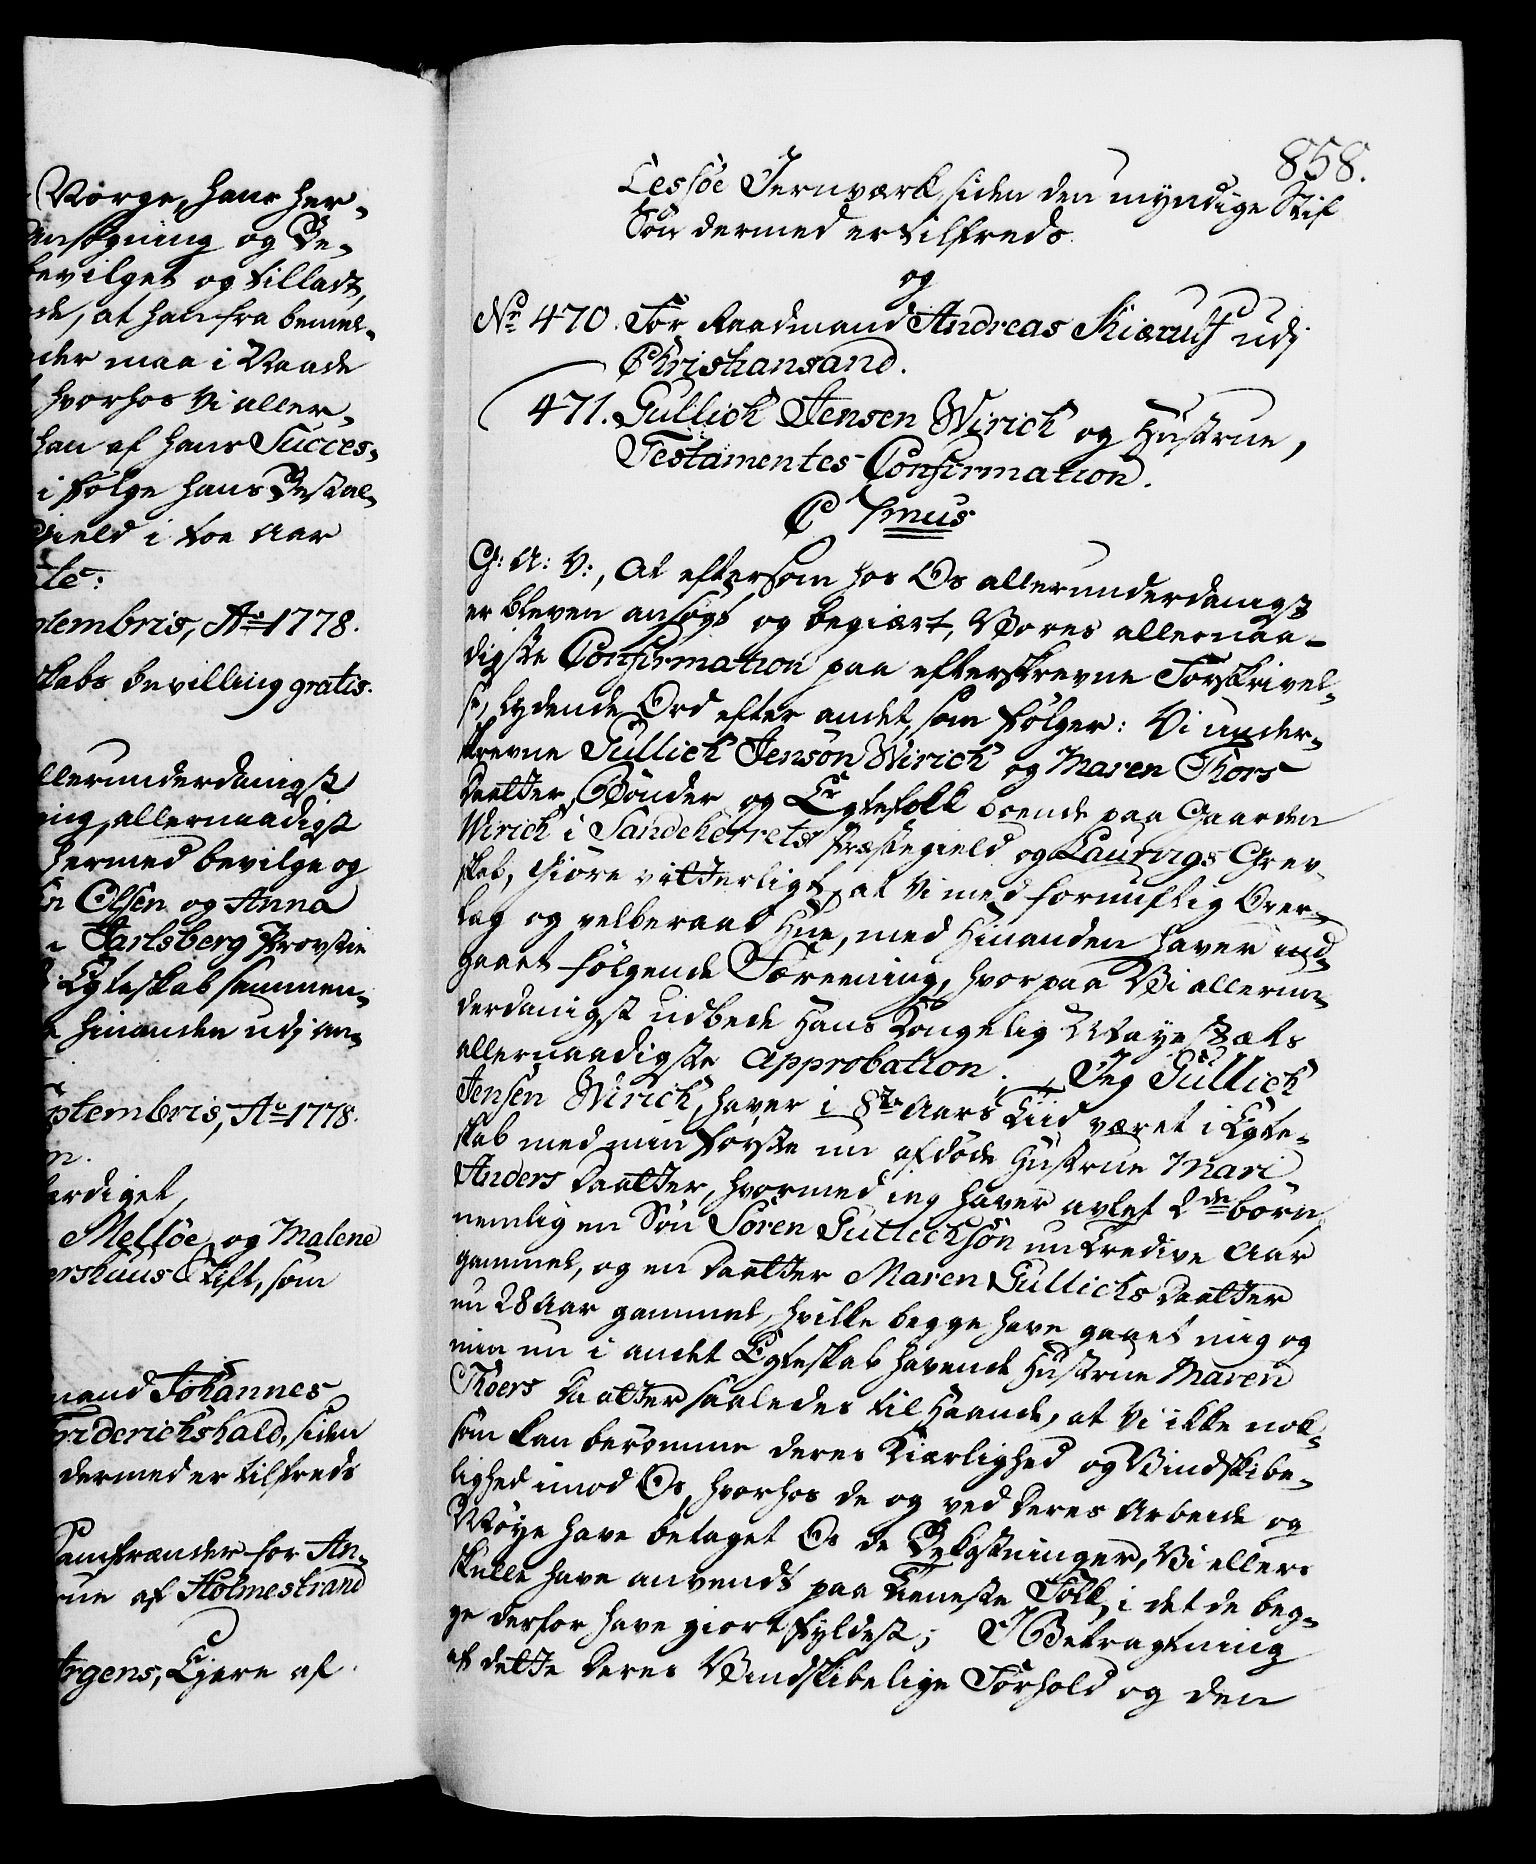 Norge, hans her-
ansøgning og Be-
bevilget og tilladt,
at han fra bemel-
maa i Raade
hvorhos Vi aller-
han af hans Succes-
i følge hans Bestal-
i toe Aar
ptembris, Ao 1778.
skabs bevilling gratis.
llerunderdanigst
allernaadigst
hermed bevilge og
Olsen og Anna
i Jarlsberg Provstie
Egteskab sammen-
hinanden udj an-
ptembris, Ao 1778.
færdiget,
Mellöe og Malene
ershuus Stift, som
mand Johannes
Friderichshald, siden
dermed er tilfreds
Samfrænder for An-
rue af Holmestrand
ørgens, Ejere af
858.
Lessöe Jernværk, siden den myndige Stif
Søn dermed er tilfreds.
og
No 470. For Raadmand Andreas Kiærulf udj
Christiansand.
471. Gullich Jensen Wirich og Hustrue,
Testamentes Confirmation.
C 7mus
G: A: V:, At eftersom hos Os allerunderdanigst
er bleven ansøgt og begiært, Vores allernaa-
digste Confirmation paa efterskrevne Forskrivel-
se, lydende Ord efter andet, som følger: Vi under-
skrevne Gullich Jenson Wirich og Maren Thors
Daatter, Bønder og Egtefolk boende paa Gaarden
Wirich i Sandeherrets Præstegield og Laurvigs Grev-
skab, Giøre vitterligt, at Vi med fornuftig Over-
læg og velberaad Hue, med Hinanden haver ind-
gaaet følgende Foreening, hvorpaa Vi allerun-
derdanigst udbede Hans Kongelig Mayestæts
allernaadigste Approbation. Jeg Gullich
Jensen Wirich, haver i 8te Aars Tiid været i Egte-
skab med min første nu afdøde Hustrue Mari
Anders Daatter, hvormed ieg haver avlet 2de børn,
nemlig en Søn Sören Gullichsön nu tredive Aar
gammel, og en Daatter Maren Gullichs Daatter
nu 28 Aar gammel, hvilke begge have gaaet mig og
min nu i andet Egteskab havende Hustrue Maren
Thoers Daatter saaledes til Haande, at Vi ikke nok-
som kan berømme deres Kiærlighed og Vindskibe-
lighed imod Os, hvorhos de og ved deres Arbeide og
Møye have betaget Os de Bekostninger, Vi ellers
skulle have anvendt paa Tieneste Folk, i det de beg-
ge derfor have giort Fyldest; I Betragtning
af dette deres Vindskibelige Forhold og den